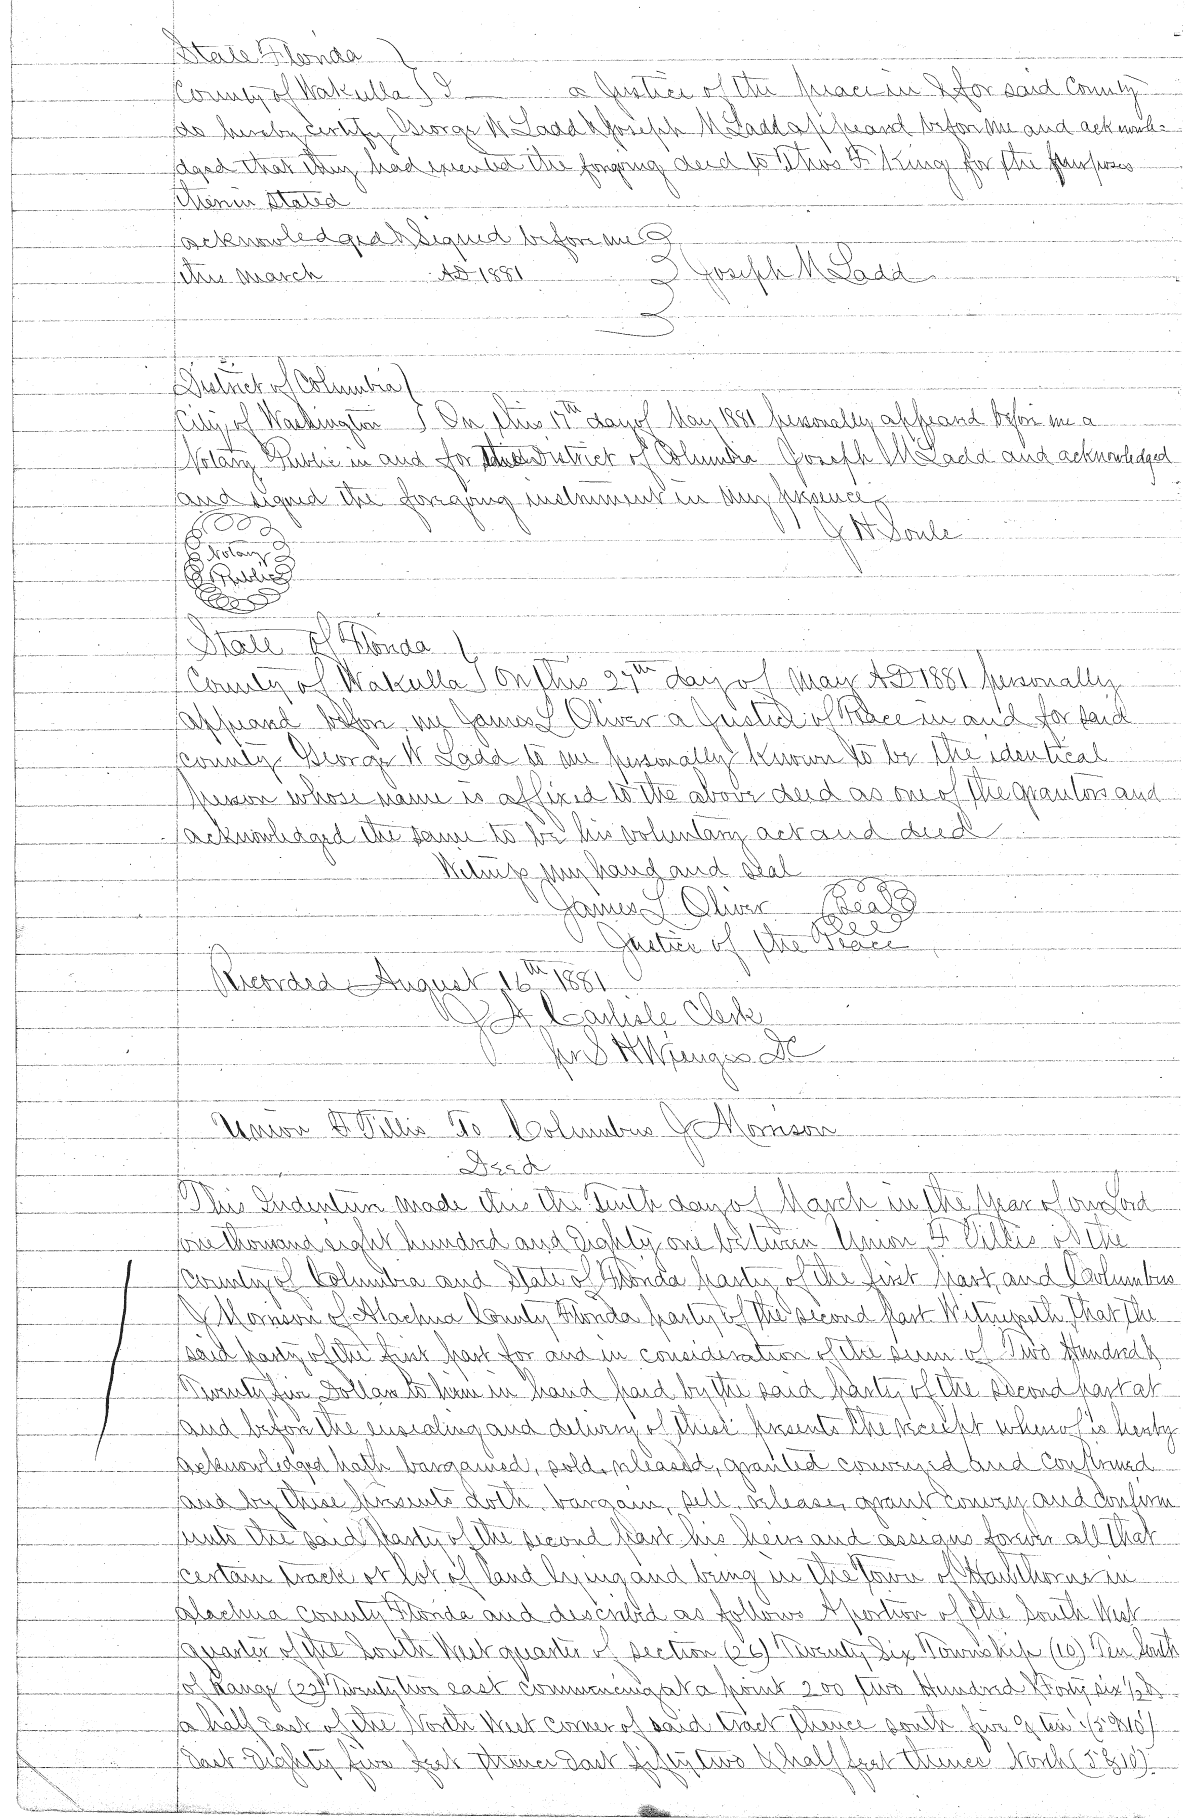 State Florida }
County of Wakulla } I — a Justice of the peace in & for said County
do hereby certify George W Ladd & Joseph M Ladd appeard before me and acknowle-
dged that they had executed the forgoing deed to Thos F King for the purposes
therein stated
acknowledged & Signed before me }
this march AD 1881 } Joseph M Ladd
District of Columbia }
City of Washington } On this 17th day of May 1881 personally appeard before me a
Notary Public in and for District of Columbia Joseph M Ladd and acknowledged
and signed the foregoing instrument in my presence
J H Soule
Notary
Public
State of Florida }
County of Wakulla } On this 27th day of May AD 1881 personally
appeard before me James L Oliver a Justice of Peace in and for said
county George W Ladd to me personally known to be the identical
person whose name is affixed to the above deed as one of the grantors and
acknowledged the same to be his voluntary act and deed
Witness my hand and seal
James L Oliver Seal
Justice of the Peace
Recorded August 16th 1881
J A Carlisle Clerk
per S H Wienges DC
Union F Tillis To Columbus J Morrison
Deed
This Indenture made this the Tenth day of March in the Year of our Lord
one thousand eight hundred and Eighty one between Union F Tillis of the
County of Columbia and State of Florida party of the first part, and Columbus
J Morrison of Alachua County Florida party of the second part Witnesseth, that the
said party of the first part for and in consideration of the sum of Two Hundred &
Twenty five Dollars to him in hand paid by the said party of the second part at
and before the ensealing and delivery of these presents the receipt whereof is hereby
acknowledged hath bargained, sold, released, granted conveyed and confirmed
and by these presents doth bargain, sell, release, grant convey and confirm
unto the said party of the second part his heirs and assigns forever all that
certain track or lot of land lying and being in the Town of Hawthorne in
Alachua County Florida and described as follows A portion of the South West
quarter of the South West quarter of section (26) Twenty Six Township (10) Ten South
of Range (22) Twenty two east commencing at a point 200 two Hundred & Forty six 1/2 &
a half East of the North West corner of said tract thence south five & ten (5°&10')
East Eighty five feet thence East fifty two & half feet thence North (5°&10')